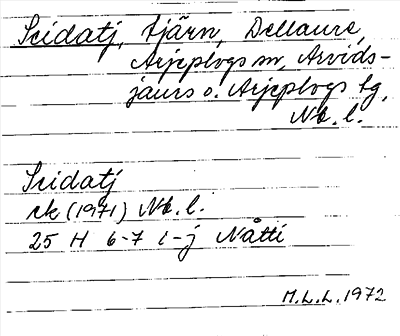 Seidatj, tjärn, Dellaure,
Arjeplogs sn, Arvids-
jaurs o. Arjeplogs tg,
Nb. l.
Seidatj
rk (1971) Nb. l.
25 H 6-7 i-j Nåtti
M.L.L. 1972